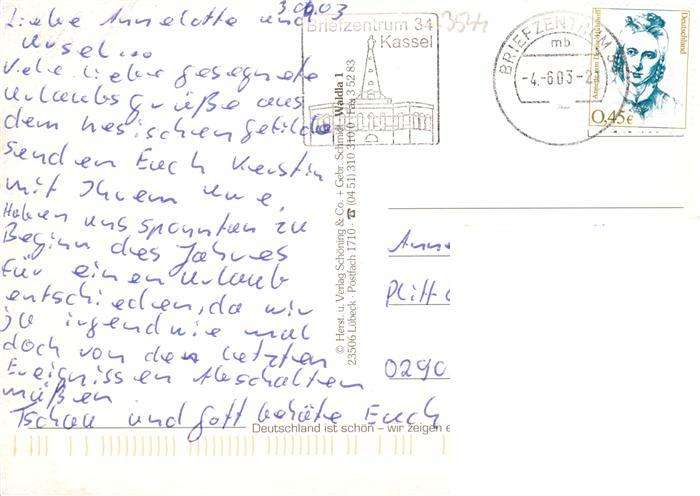 Liebe Annelotte und
Ursel...
Viele liebe gesegnete
Urlaubsgrüße aus
dem hesischen gefilde
senden Euch Kerstin
mit Ihrem Uwe,
Haben uns sponntan zu
Beginn des Jahres
für einen Urlaub
entschieden, da wir
ja irgendwie mal
doch von den letzten
Ereignissen Abschalten
müßen
Tschau und Gott behüte Euch
Briefzentrum 34
Kassel
BRIEFZENTRUM
mb
-4.-6.03-2
Deutschland
0,45€
© Herst. u. Verlag Schöning & Co. + Gebr. Schmidt
Waldla 1
23506 Lübeck · Postfach 1710 · ☎ (0451) 310 310
Fax 3 52 83
Plitt
0290
Deutschland ist schön – wir zeigen e